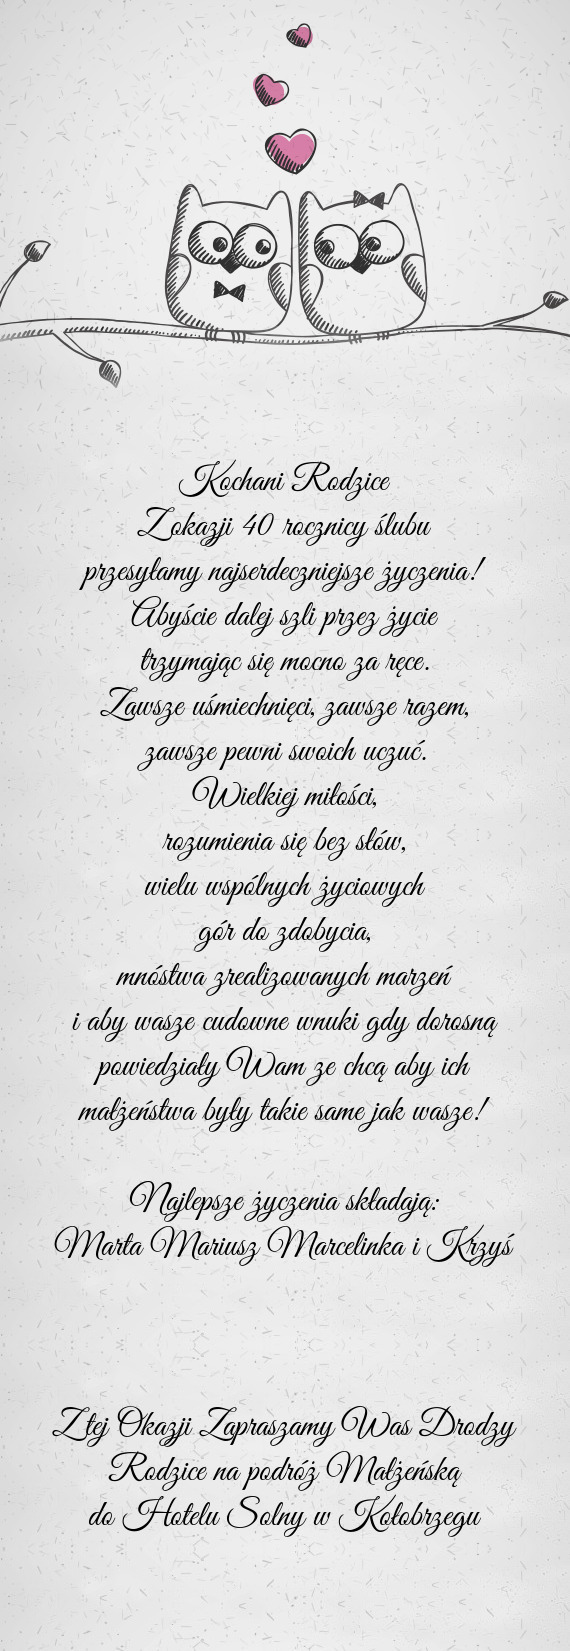 Kochani Rodzice
Z okazji 40 rocznicy ślubu
przesyłamy najserdeczniejsze życzenia!
Abyście dalej szli przez życie
trzymając się mocno za ręce.
Zawsze uśmiechnięci, zawsze razem,
zawsze pewni swoich uczuć.
Wielkiej miłości,
rozumienia się bez słów,
wielu wspólnych życiowych
gór do zdobycia,
mnóstwa zrealizowanych marzeń
i aby wasze cudowne wnuki gdy dorosną
powiedziały Wam ze chcą aby ich
małżeństwa były takie same jak wasze!
Najlepsze życzenia składają:
Marta Mariusz Marcelinka i Krzyś
Z tej Okazji Zapraszamy Was Drodzy
Rodzice na podróż Małżeńską
do Hotelu Solny w Kołobrzegu